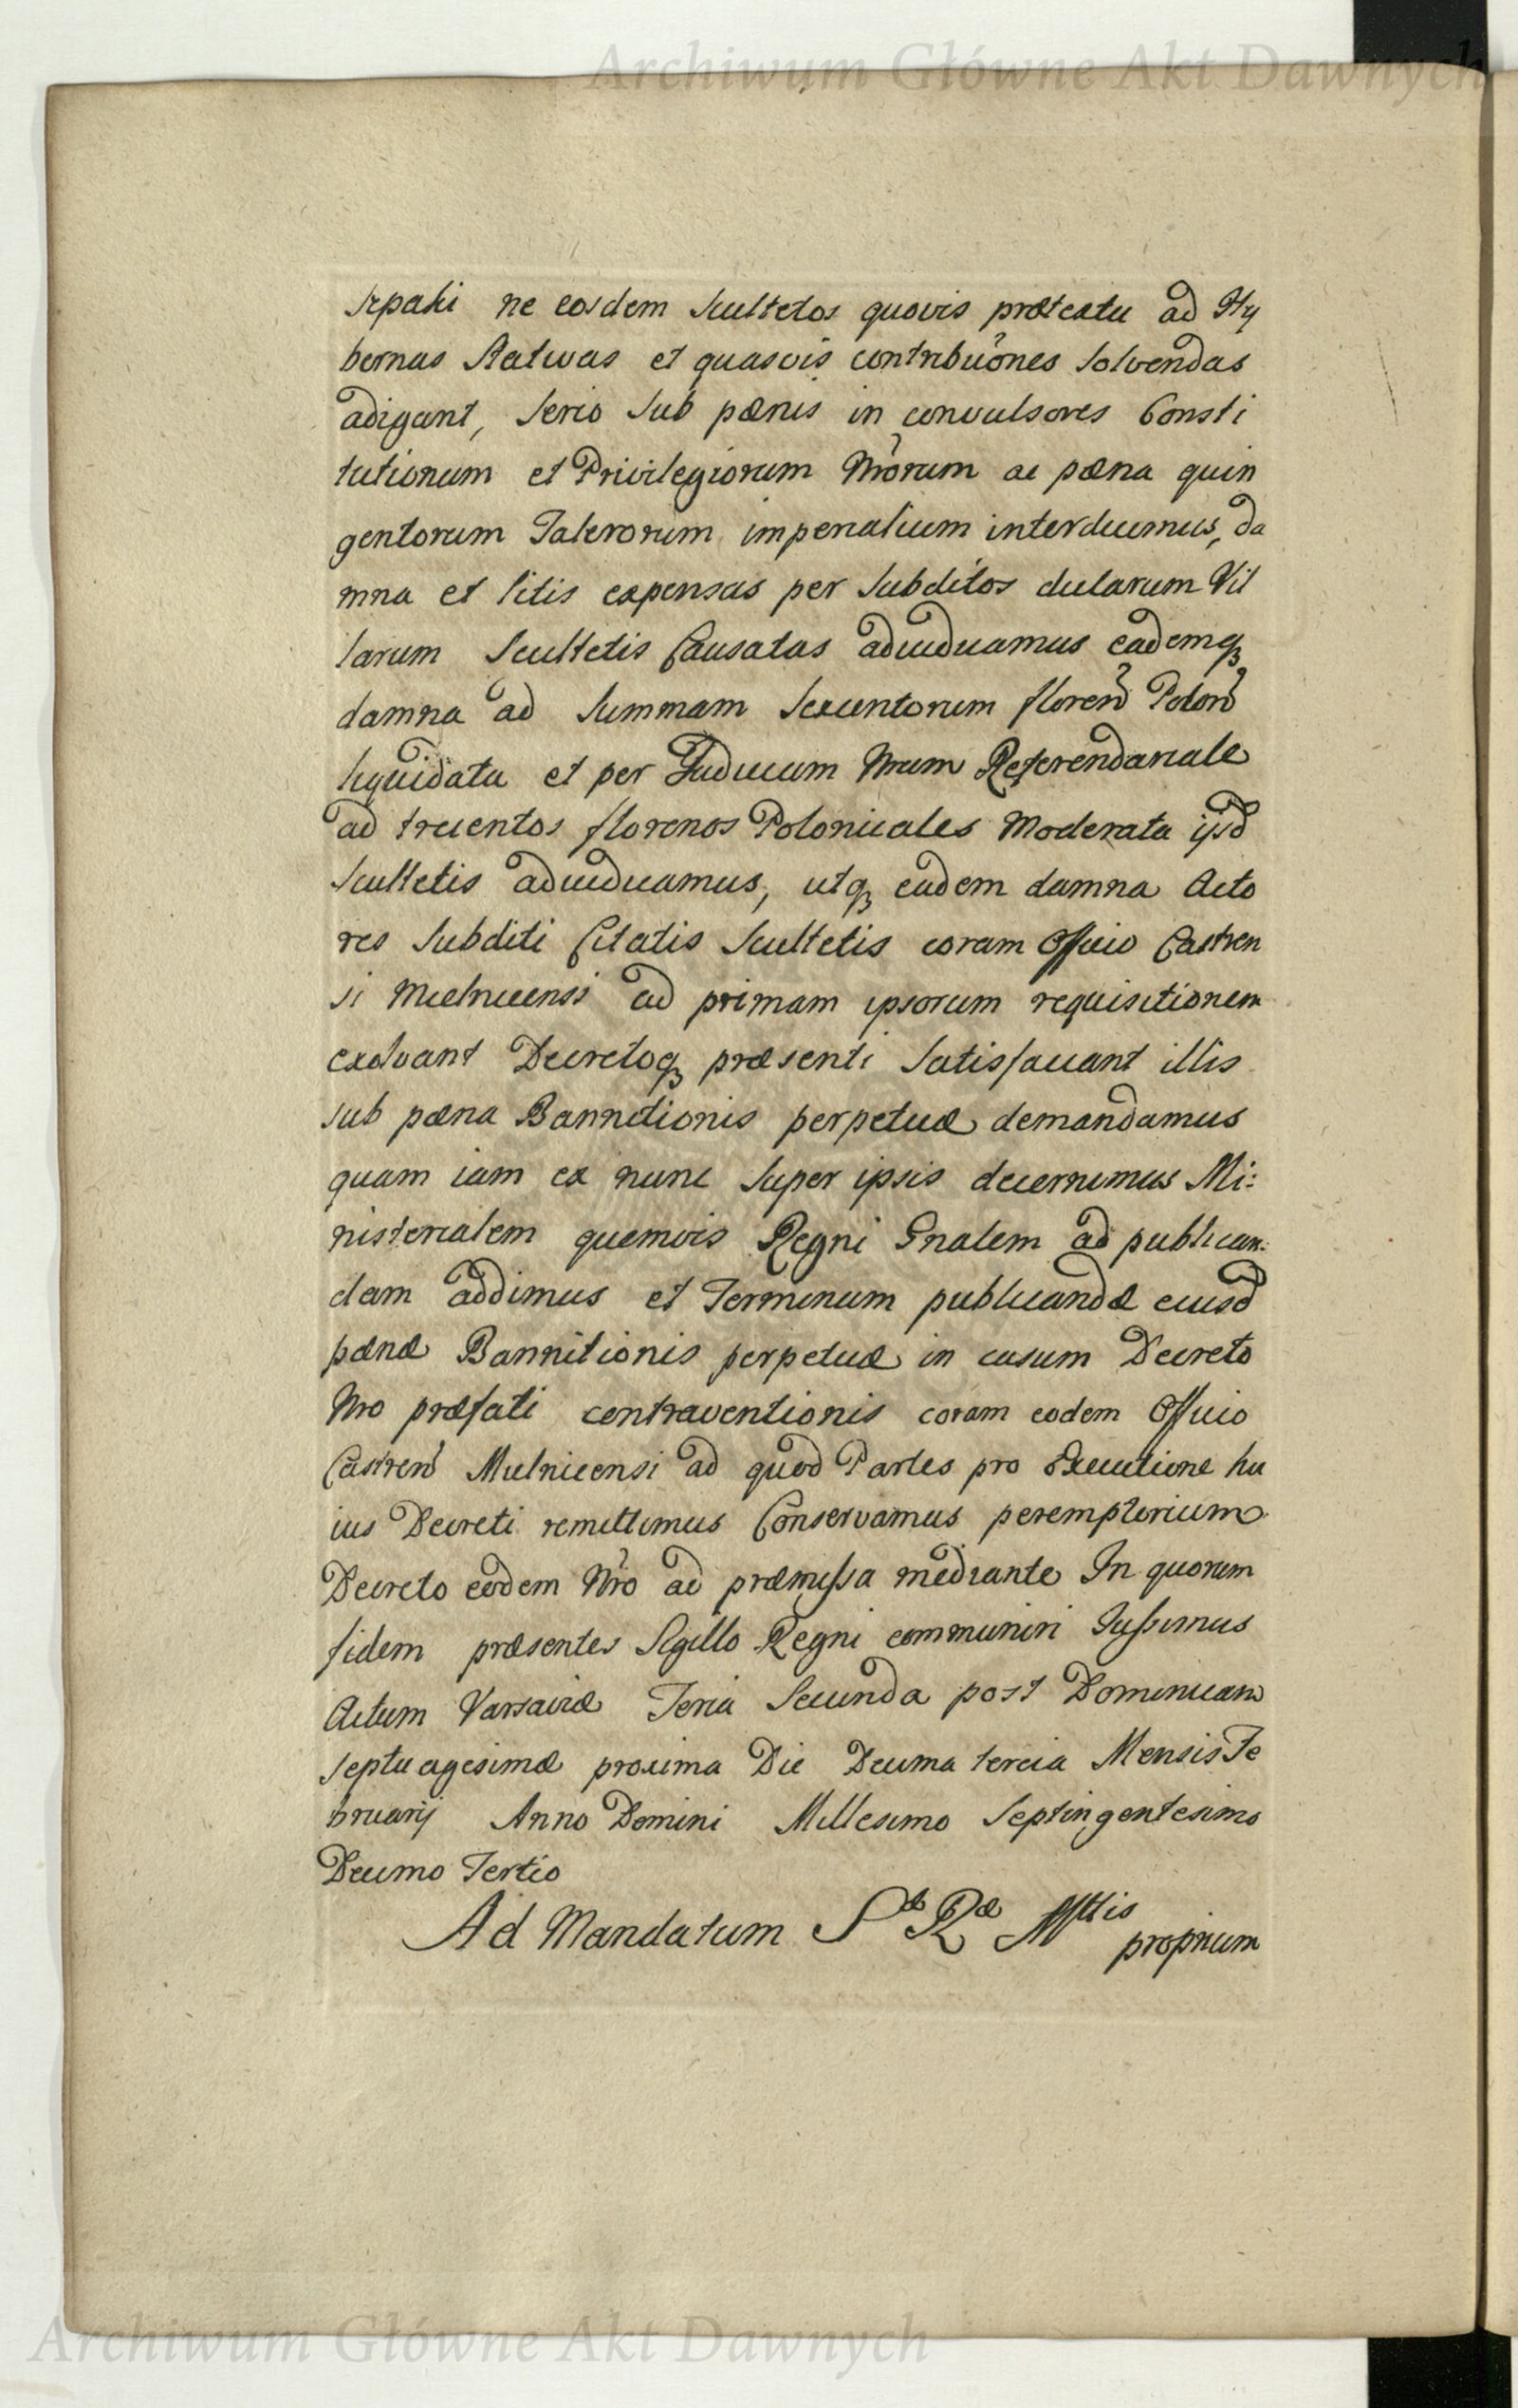 Archiwum Główne Akt Dawnych
ne eosdem Scultetos quovis prætextu ad Hy
bernas Stativas et quasvis contribuōnes Solvendas
adigant, Serio Sub pænis in convulsores Consti
tutionum et Privilegiorum Nrōrum ac pæna quin
gentorum Talerorum imperialium interdicimus, da
mna et litis expensas per Subditos dictarum Vil
larum Scultetis Causatas adiudicamus eademq
damna ad Summam Sexcentorum floren Polon
liquidata et per Iudicium Nrum Referendariale
ad trecentos florenos Polonicales Moderata ijsd
Scultetis adiudicamus, utq eadem damna Acto
res Subditi Citatis Scultetis coram Officio Castren
si Mielnicensi ad primam ipsorum requisitionem
exolvant Decretoq præsenti Satisfaciant illis
sub pæna Bannitionis perpetuæ demandamus
quam iam ex nunc Super ipsis decernimus Mi:
nisterialem quemvis Regni Gnalem ad publican:
dam addimus et Terminum publicandæ eiusd
pænæ Bannitionis perpetuæ in casum Decreto
Nro præfati contraventionis coram eodem Officio
Castren Mielnicensi ad quod Partes pro Executione hu
ius Decreti remittimus Conservamus peremptorium
Decreto eodem Nrō ad præmissa mediante In quorum
fidem præsentes Sigillo Regni communiri Iussimus
Actum Varsaviæ Feria Secunda post Dominicam
Septuagesimæ proxima Die Decima tercia Mensis Fe
bruarij Anno Domini Millesimo Septingentesimo
Decimo Tertio
Ad Mandatum S Ræ Mttis
proprium
Archiwum Główne Akt Dawnych